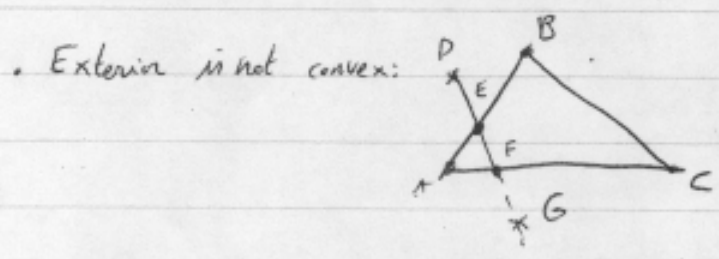 . Exterior is not convex:
B
D
E
F
A
C
G